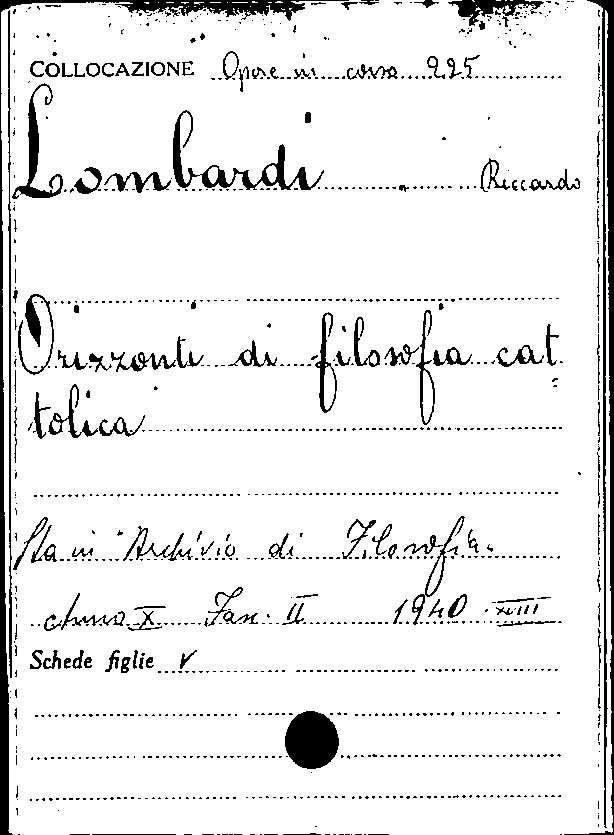 COLLOCAZIONE Opere in corso 225
Lombardi Riccardo
Orizzonti di filosofia cat=
tolica
Sta in "Archivio di Filosofia"
Anno X Fasc. II 1940 XVIII
Schede figlie V